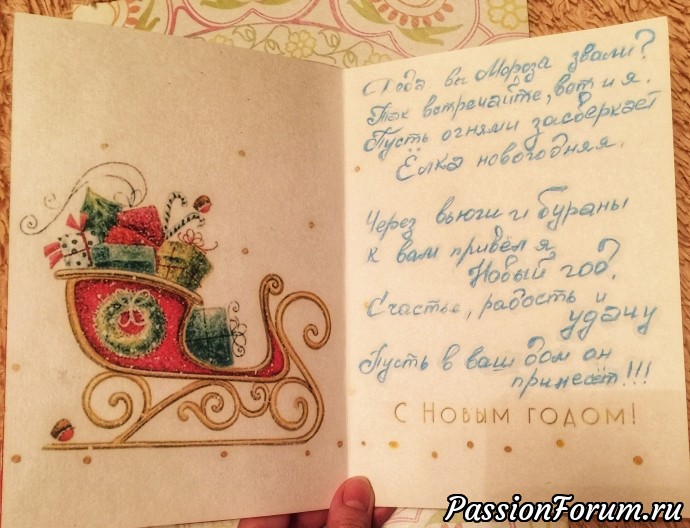 Деда вы Мороза звали?
Так встречайте, вот и я.
Пусть огнями засверкает
Ёлка новогодняя.
Через вьюги и бураны
к вам привёл я
Новый год.
Счастье, радость и
удачу
Пусть в ваш дом он
принесёт!!!
С Новым годом!
PassionForum.ru